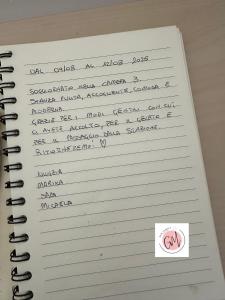 DAL 09/08 AL 12/08 2025
SOGGIORNATO NELLA CAMERA 3.
STANZA PULITA, ACCOGLIENTE, COMODA E
MODERNA.
GRAZIE PER I MODI GENTILI CON CUI
CI AVETE ACCOLTO, PER IL GELATO E
PER IL PASSAGGIO DALLA STAZIONE.
RITORNEREMO! ♡
NUNZIA
MARIKA
SARA
MICAELA
GM